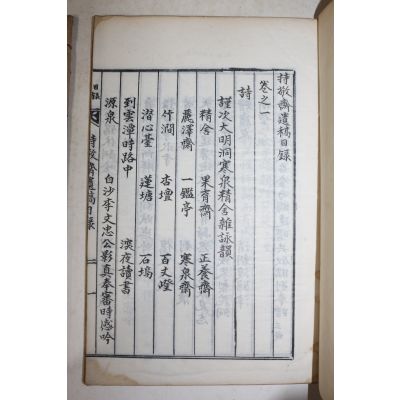 持敬齋遺稿目錄
卷之一
詩
謹次大明洞寒泉精舍雜詠韻
精舍 果育齋 正養齋
麗澤齋 一鑑亭 寒泉齋
竹澗 杏壇 百丈嶝
潛心臺 蓮塘 石塢
到雲漳時路中 深夜讀書
源泉 白沙李文忠公影真奉審時感吟
目錄
持敬齋遺稿目錄 一